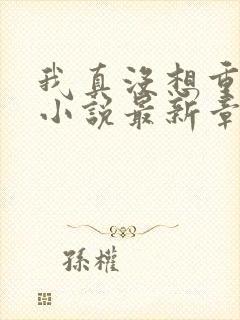 我真没想重
小说最新章
孫權